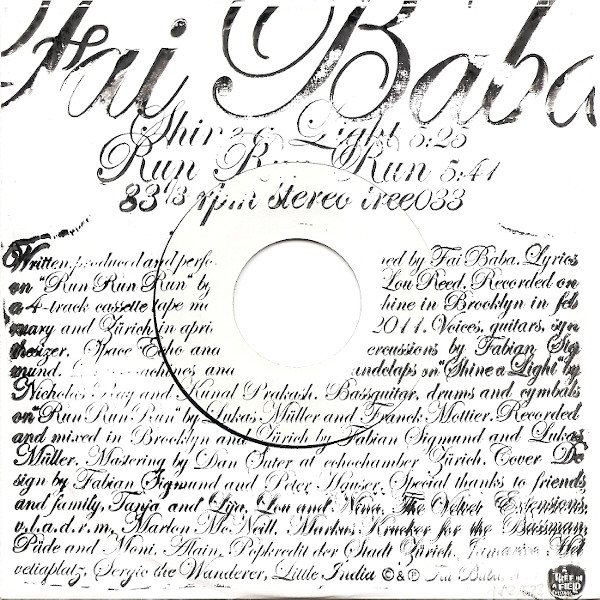 Fai Baba
Shine a Light 5:25
Run Run Run 5:41
33 1/3 rpm stereo tree033
Written, produced and perfo ed by Fai Baba. Lyrics
on "Run Run Run" by Lou Reed. Recorded on
a 4-track cassette tape ma hine in Brooklyn in feb
ruary and Zürich in apris 2011. Voices, guitars, syn
thesizer, Space Echo and ercussions by Fabian Sig
mund. achines and andclaps on "Shine a Light" by
Nicholas Ray and Kunal Prakash. Bassguitar, drums and cymbals
on "Run Run Run" by Lukas Müller and Franck Mottier. Recorded
and mixed in Brooklyn and Zürich by Fabian Sigmund and Lukas
Müller. Mastering by Dan Suter at echochamber Zürich. Cover De
sign by Fabian Sigmund and Peter Hauser. Special thanks to friends
and family, Tanja and Lou and Nina, The Velvet Extensions,
v.l.a.d.r.m, Marlon Mc Neill, Markus for the Bassman,
Päde and Moni, Alain, Popkredit der Stadt Zürich, Hel
vetiaplatz, Sergio the Wanderer, Little India © & ℗ Fai Baba,
A TREE IN A FIELD